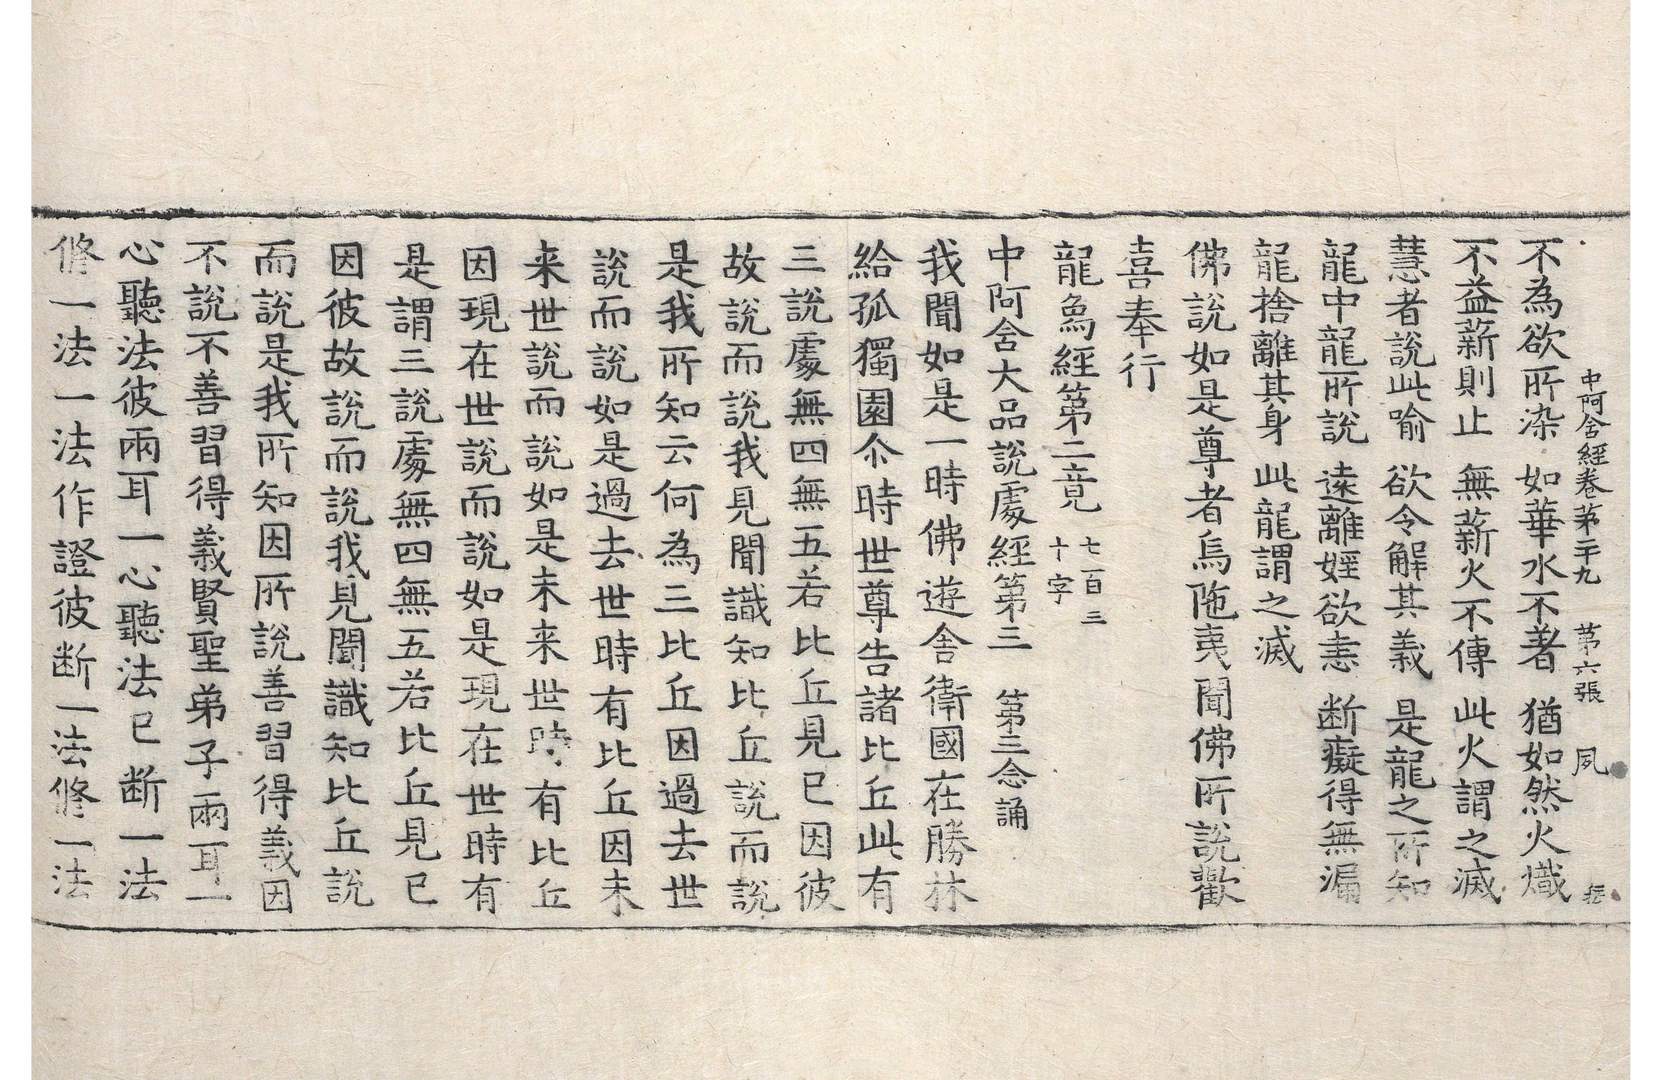 中阿含經卷第二十九　第六張　夙
不為欲所染　如華水不著　猶如然火熾
不益薪則止　無薪火不傳　此火謂之滅
慧者說此喻　欲令解其義　是龍之所知
龍中龍所說　遠離婬欲恚　断癡得無漏
龍捨離其身　此龍謂之滅
佛說如是尊者烏陁夷聞佛所說歡
喜奉行
龍鳥經第二竟
七百三
十字
中阿含大品說處經第三　第三念誦
我聞如是一時佛遊舍衛國在勝林
給孤獨園尒時世尊告諸比丘此有
三說處無四無五若比丘見已因彼
故說而說我見聞識知比丘說而說
是我所知云何為三比丘因過去世
說而說如是過去世時有比丘因未
来世說而說如是未来世時有比丘
因現在世說而說如是現在世時有
是謂三說處無四無五若比丘見已
因彼故說而說我見聞識知比丘說
而說是我所知因所說善習得義因
不說不善習得義賢聖弟子兩耳一
心聽法彼兩耳一心聽法已断一法
修一法一法作證彼断一法修一法